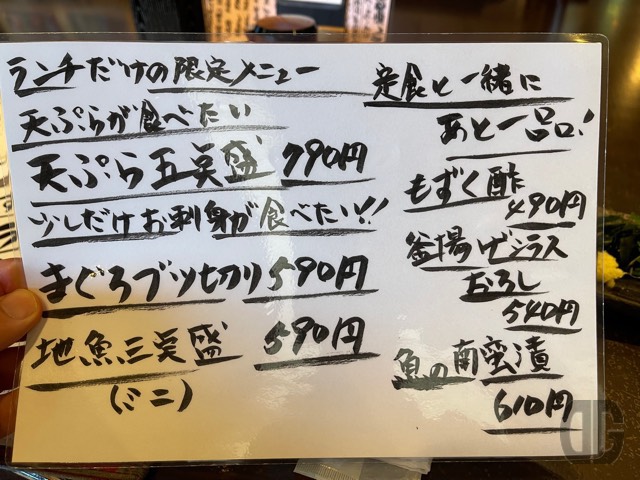 ランチだけの限定メニュー
天ぷらが食べたい
天ぷら五点盛 790円
少しだけお刺身が食べたい!!
まぐろブツ切り 590円
地魚三点盛 590円
(ミニ)
定食と一緒に
あと一品!
もずく酢
490円
釜揚げシラス
おろし
540円
魚の南蛮漬
610円